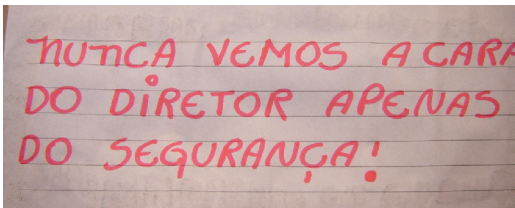 NUNCA VEMOS A CARA
DO DIRETOR APENAS
DO SEGURANÇA!